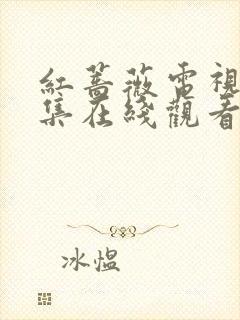 紅薔薇電視
集在綫觀看
冰愠